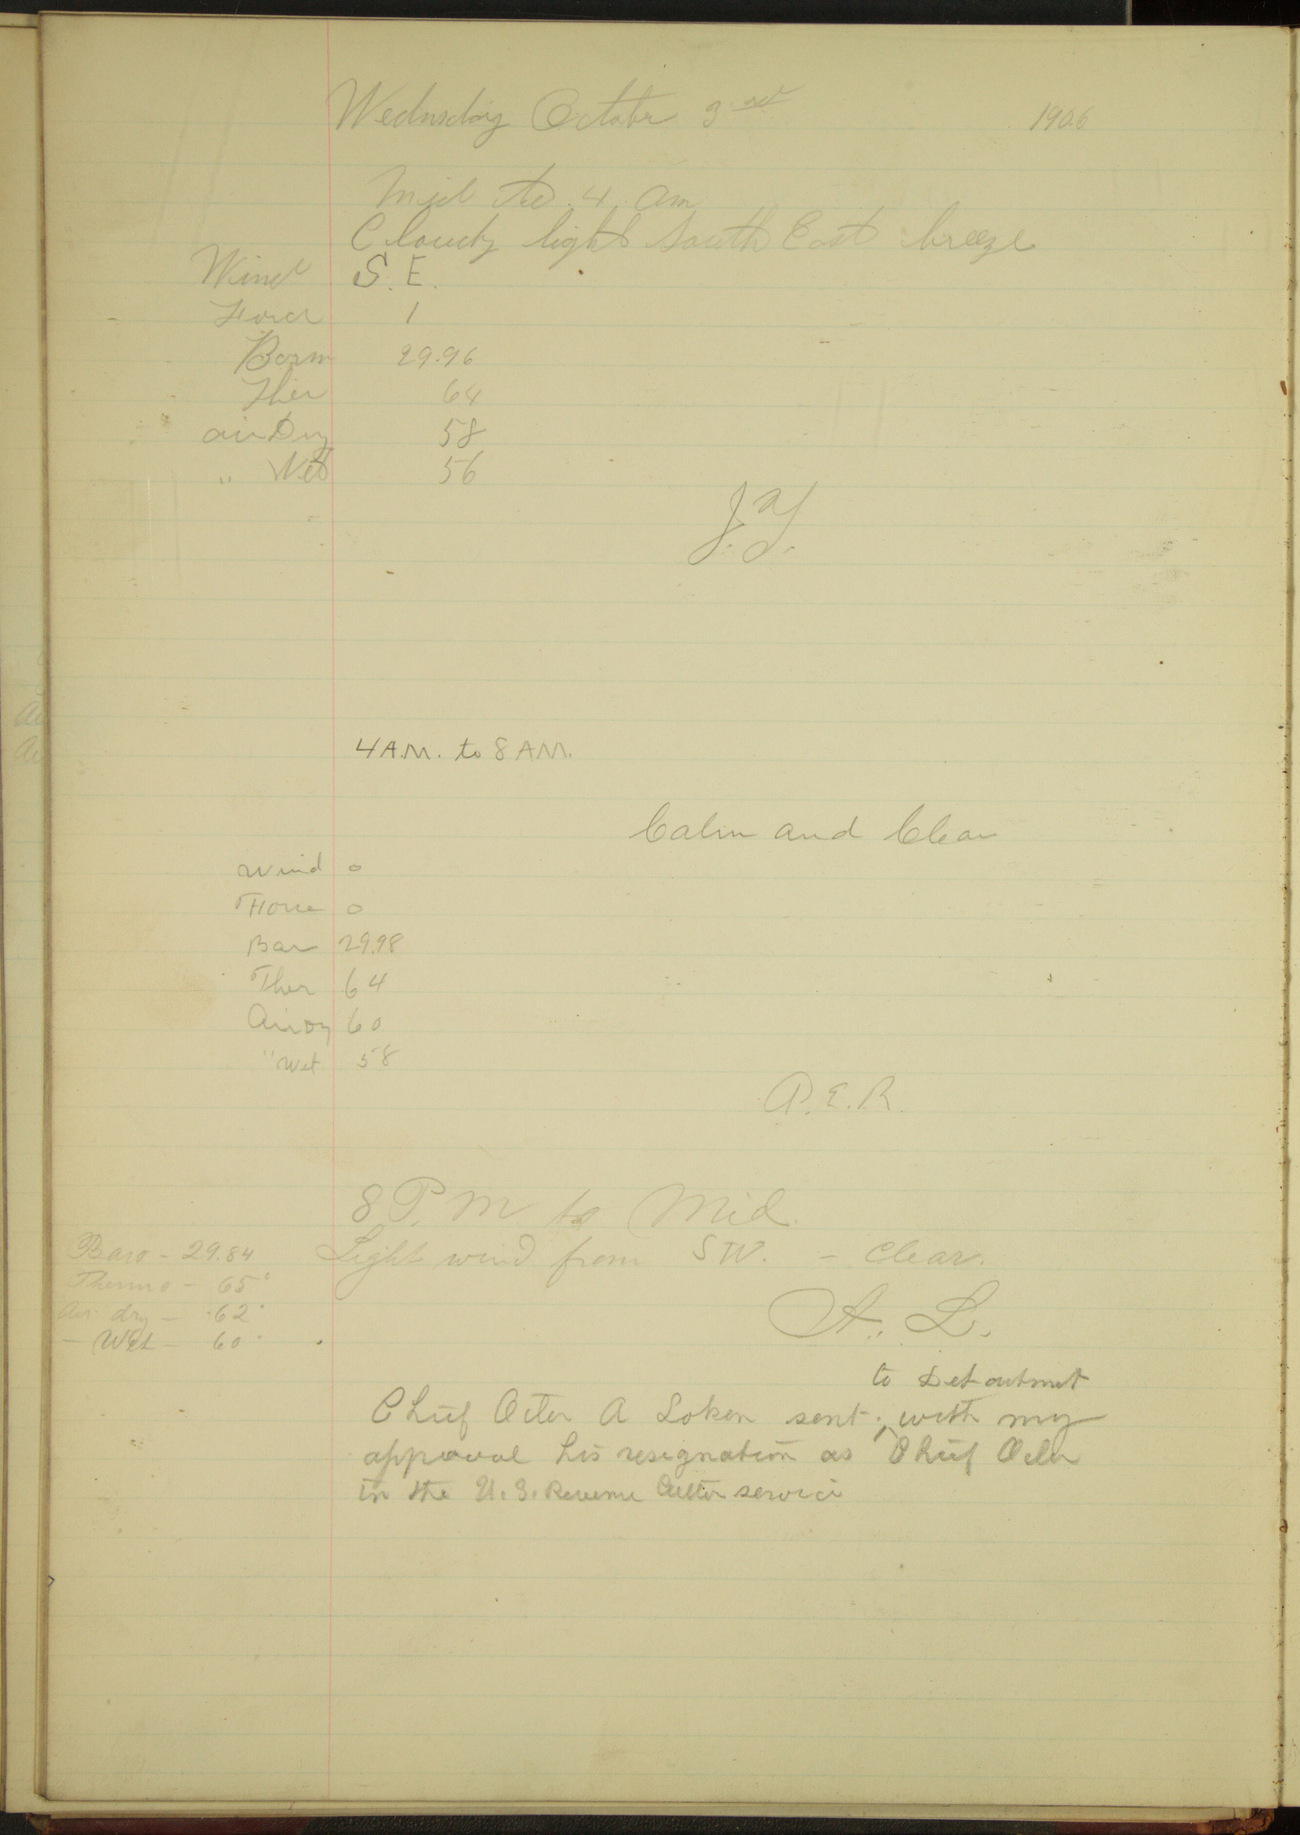 Wednsday October 3rd 1906
Mid to 4 am
Cloudy light South East breeze
Wind S. E.
Force 1
Barm 29.96
Ther 64
air Dry 58
" Wet 56
4 A.M. to 8 AM.
Calm and Clear
Wind 0
Force 0
Bar 29.98
Ther 64
Air Dry 60
" Wet 58
P. E. R.
8 P. M to Mid.
Baro - 29.84 Light wind from SW. - Clear.
Thermo - 65°
Air dry - 62°
- Wet - 60°
A. L.
to Department
Chief Oiler A Loken sent, with my
approval his resignation as Chief Oiler
in the U. S. Revenue Cutter service